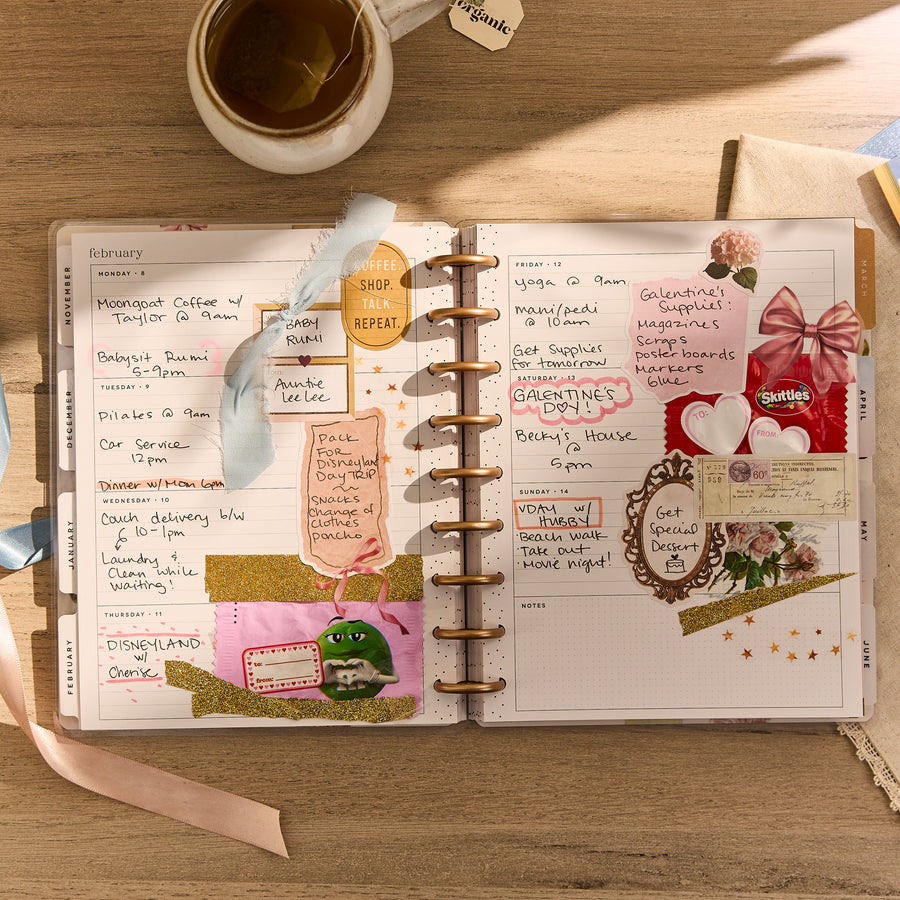 organic
february
MONDAY • 8
Moongoat Coffee w/
Taylor @ 9am
Babysit Rumi
5-9pm
COFFEE.
SHOP.
TALK.
REPEAT.
BABY
RUMI
from:
Auntie
Lee Lee
TUESDAY • 9
Pilates @ 9am
Car Service
12pm
Dinner w/ Mom 6pm
Pack
FOR
Disneyland
DAY TRIP
~
SNACKS
change of
clothes
poncho
WEDNESDAY • 10
Couch delivery b/w
10-1pm
Laundry &
Clean while
waiting!
THURSDAY • 11
DISNEYLAND
w/
Cherise
to:
from:
NOVEMBER
DECEMBER
JANUARY
FEBRUARY
FRIDAY • 12
yoga @ 9am
mani/pedi
@ 10am
Get Supplies
for tomorrow
Galentine's
Supplies:
Magazines
Scraps
poster boards
Markers
Glue
SATURDAY • 13
GALENTINE'S
DAY!
Becky's House
@
5pm
Skittles
TO:
FROM:
SUNDAY • 14
VDAY w/
HUBBY
Beach walk
Take out
Movie night!
Get
Special
Dessert
NOTES
MARCH
APRIL
MAY
JUNE